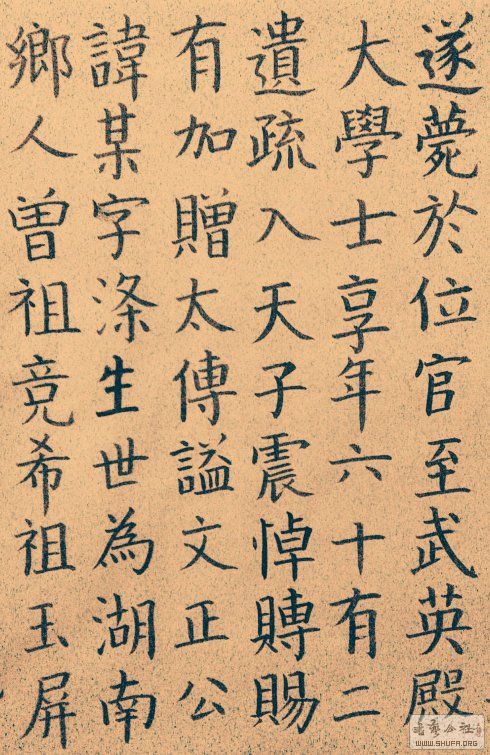 遂薨於位官至武英殿
大學士享年六十有二
遺疏入天子震悼賻賜
有加贈太傅謚文正公
諱某字滌生世為湖南
鄉人曾祖竟希祖玉屏
WWW.SHUFA.ORG